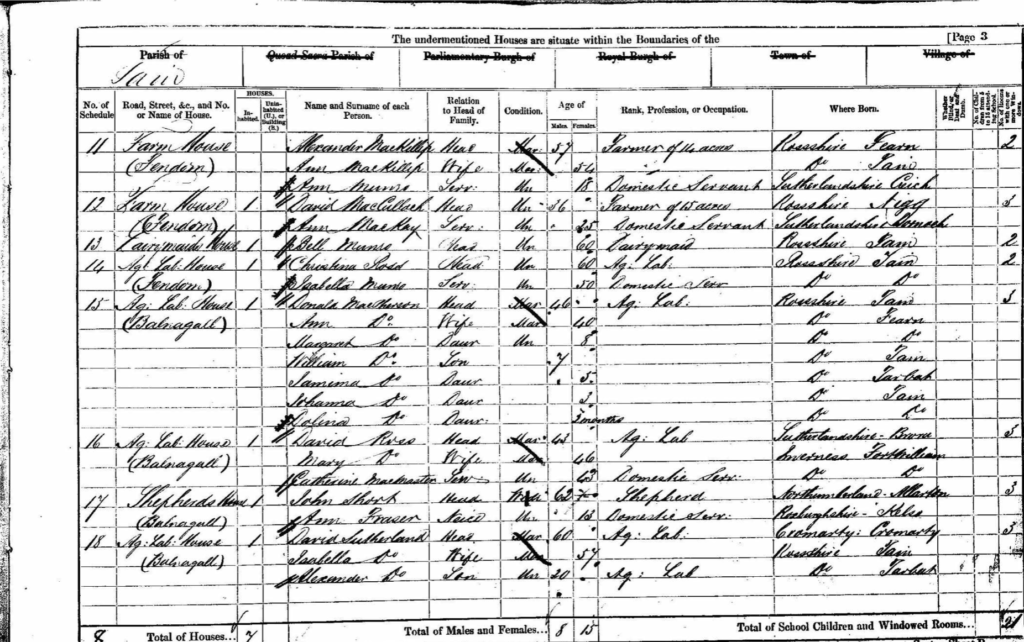 The undermentioned Houses are situate within the Boundaries of the [Page 3
Parish of Quoad Sacra Parish of Parliamentary Burgh of Royal Burgh of Town of Village of
Tain
No. of Schedule Road, Street, &c., and No. or Name of House. HOUSES. Inhabited. Uninhabited (U.), or Building (B.) Name and Surname of each Person. Relation to Head of Family. Condition. Age of Males. Females. Rank, Profession, or Occupation. Where Born. Whether Blind, or Deaf and Dumb.
11 Farm House Alexander MacKillip Head Mar 57 Farmer of 14 acres Rossshire Fearn 2
(Fendom) Ann MacKillip Wife Mar: 54 Do Tain
Ann Munro Serv: Un 18 Domestic Servant Sutherlandshire Creich
12 Farm House 1 David MacCulloch Head Un 36 Farmer of 15 acres Rossshire Nigg 3
(Fendom) Ann MacKay Serv: Un 25 Domestic Servant Sutherlandshire Dornoch
13 Dairymaids House 1 Bell Munro Head Un 60 Dairymaid Rossshire Tain 2
14 Ag: Lab: House 1 Christina Ross Head Un 60 Ag: Lab: Rossshire Tain 2
(Fendom) Isabella Munro Serv: Un 50 Domestic Serv Do Do
15 Ag: Lab: House 1 Donald MacPherson Head Mar 46 Ag: Lab: Rossshire Tain 3
(Balnagall) Ann Do Wife Mar 40 Do Fearn
Margaret Do Daur Un 8 Do Do
William Do Son 7 Do Tain
Jamima Do Daur 5 Do Tarbat
Johanna Do Daur 3 Do Tain
Dolina Do Daur 3 months Do Do
16 Ag: Lab: House 1 David Ross Head Mar 43 Ag: Lab Sutherlandshire - Brora 3
(Balnagall) Mary Do Wife Mar 46 Inverness Fortwilliam
Catherine MacMaster Serv Un 43 Domestic Serv: Do Do
17 Shepherds House 1 John Short Head Wid 62 Shepherd Northumberland 3
(Balnagall) Ann Fraser Neice Un 13 Domestic Serv: Roxburghshire - Kelso
18 Ag: Lab: House 1 David Sutherland Head Mar 60 Ag: Lab: Cromarty: Cromarty 3
(Balnagall) Isabella Do Wife Mar 57 Rossshire Tain
Alexander Do Son Un 20 Ag: Lab Do Tarbat
8 Total of Houses... 7 Total of Males and Females... 8 15 Total of School Children and Windowed Rooms... 21